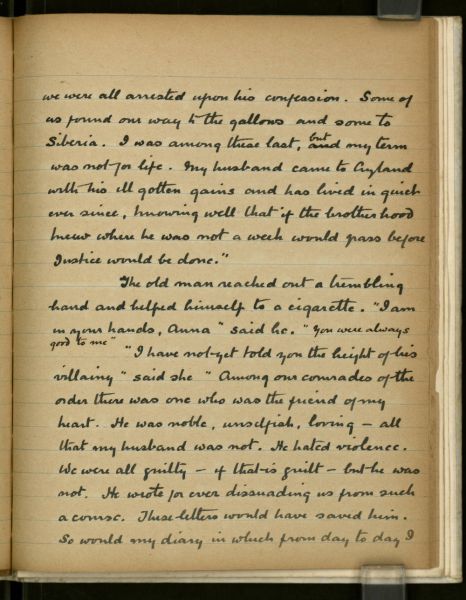 we were all arrested upon his confession. Some of
us found our way to the gallows and some to
Siberia. I was among these last, but and my term
was not for life. My husband came to England
with his ill gotten gains and has lived in quiet
ever since, knowing well that if the brotherhood
knew where he was not a week would pass before
Justice would be done."
The old man reached out a trembling
hand and helped himself to a cigarette. "I am
in your hands, Anna" said he. "You were always
good to me"
"I have not yet told you the height of his
villainy" said she " Among our comrades of the
order there was one who was the friend of my
heart. He was noble, unselfish, loving – all
that my husband was not. He hated violence.
We were all guilty – if that is guilt – but he was
not. He wrote for ever dissuading us from such
a course. These letters would have saved him.
So would my diary in which from day to day I